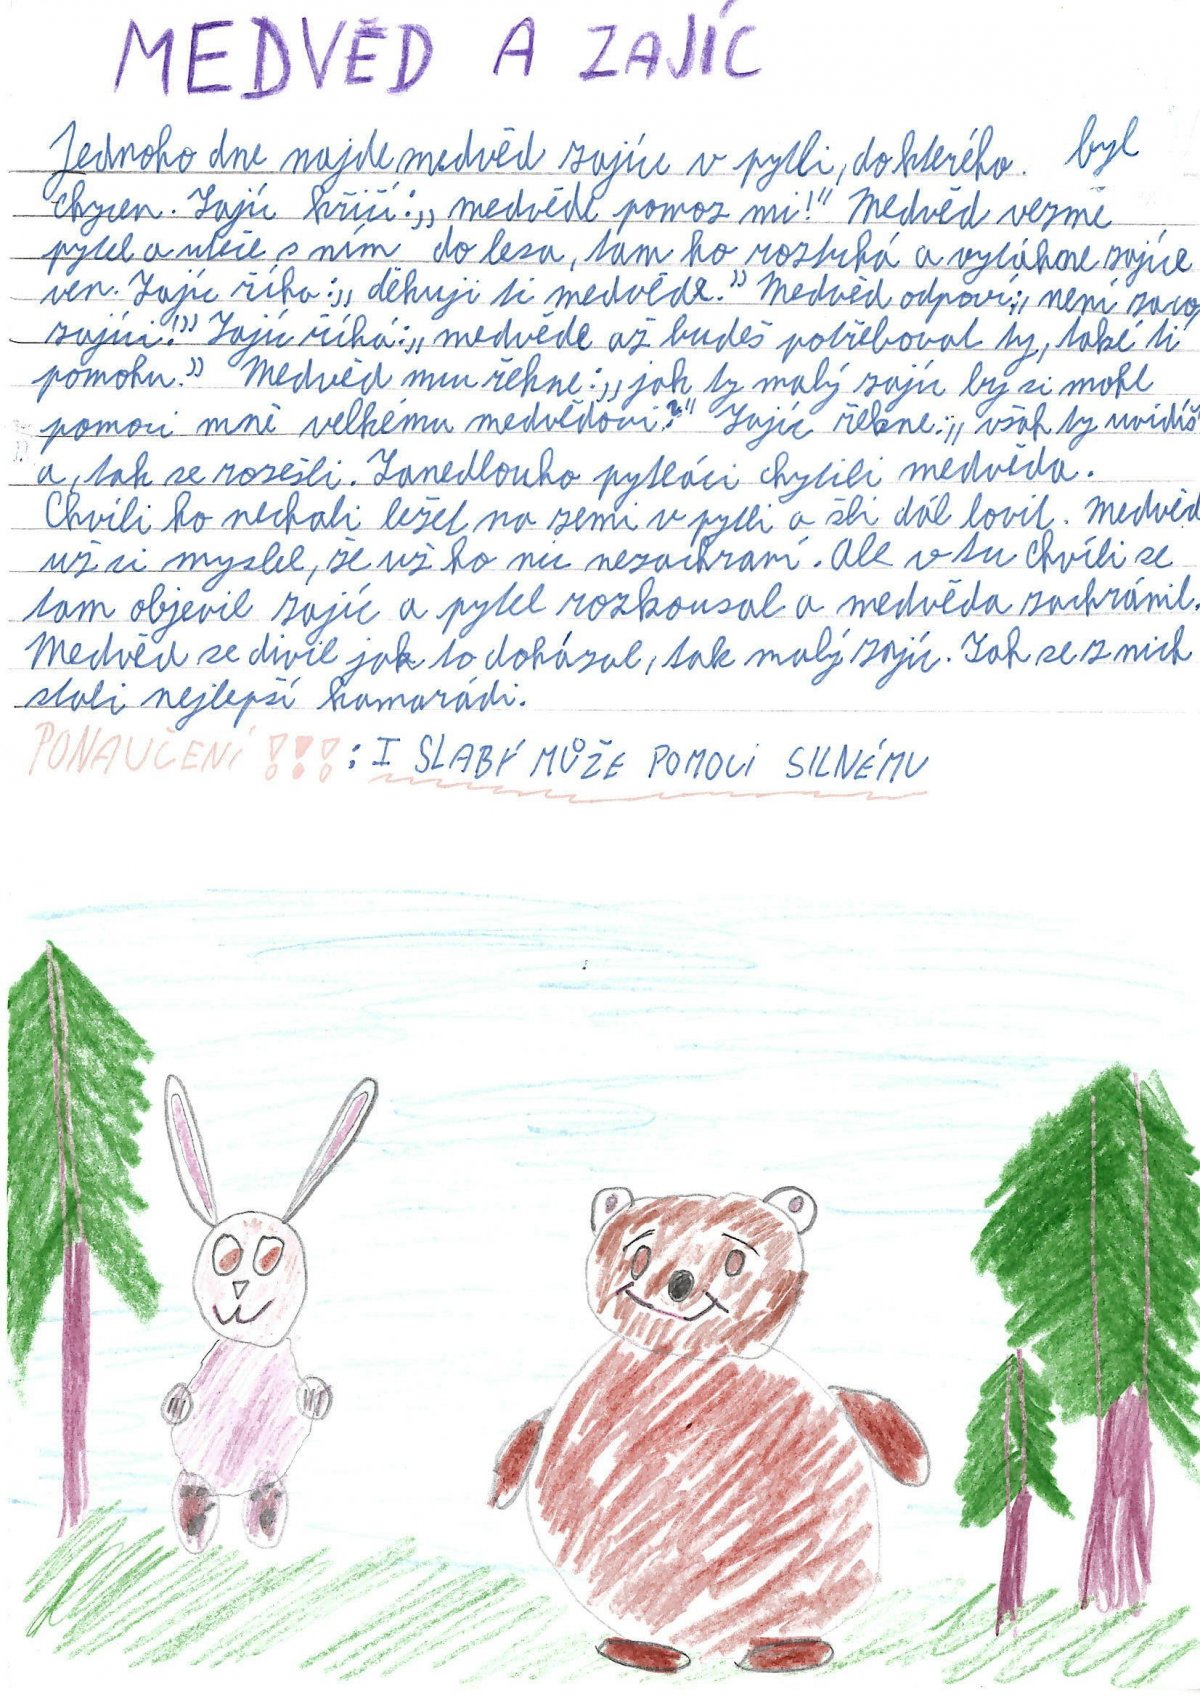 MEDVĚD A ZAJÍC
Jednoho dne najde medvěd zajíce v pytli, do kterého. byl
chycen. Zajíc křičí: „medvěde pomoz mi!" Medvěd vezmě
pytel a uteče s ním do lesa, tam ho roztrhá a vytáhne zajíce
ven. Zajíc říká: „děkuji ti medvěde." Medvěd odpoví: „není zaco
zajíci!" Zajíc říká: „medvěde až budeš potřeboval ty, také ti
pomohu." Medvěd mu řekne: „jak ty malý zajíc by si mohl
pomoci mně velkému medvědovi?" Zajíc řekne: „však ty uvidíš
a, tak se rozešli. Zanedlouho pytláci chytili medvěda.
Chvili ho nechali ležet na zemi v pytli a šli dál lovit. Medvěd
už si myslel, že už ho nic nezachraní. Ale v tu chvíli se
tam objevil zajíc a pytel rozkousal a medvěda zachránil.
Medvěd se divil jak to dokázal, tak malý zajíc. Tak se z nich
stali nejlepší kamarádi.
PONAUČENÍ !!!: I SLABÝ MŮŽE POMOCI SILNÉMU